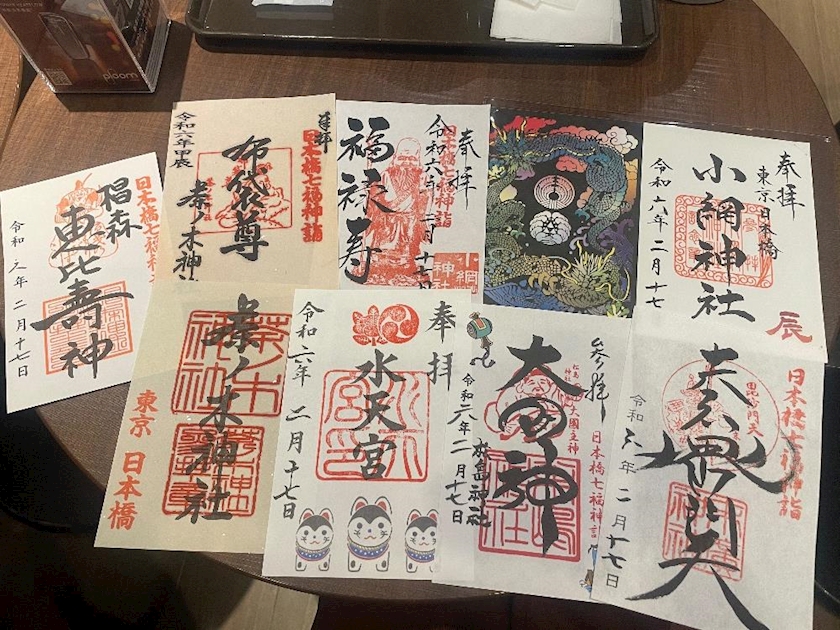 ploom
日本橋七福神詣
椙森
恵比壽神
令和六年二月十七日
奉拝
令和六年甲辰
日本橋七福神詣
布袋尊
茶ノ木神社
奉拝
日本橋七福神詣
福禄寿
令和六年二月十七日
小網
神社
奉拝
東京日本橋
小網神社
令和六年二月十七
辰
茶ノ木神社
東京 日本橋
奉拝
水天宮
令和六年
二月十七日
参拝
大國神
松島神社
日本橋七福神詣
令和六年二月十七日
日本橋七福神詣
毘沙門天
令和六年二月十七日